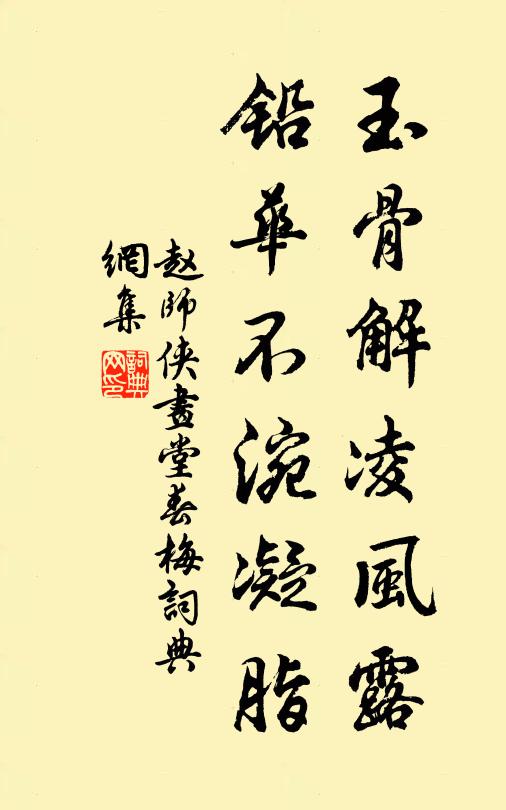 玉骨解凌風露
鉛華不涴凝脂
赵師侠畫堂春梅詞典
網集
詞典
网印